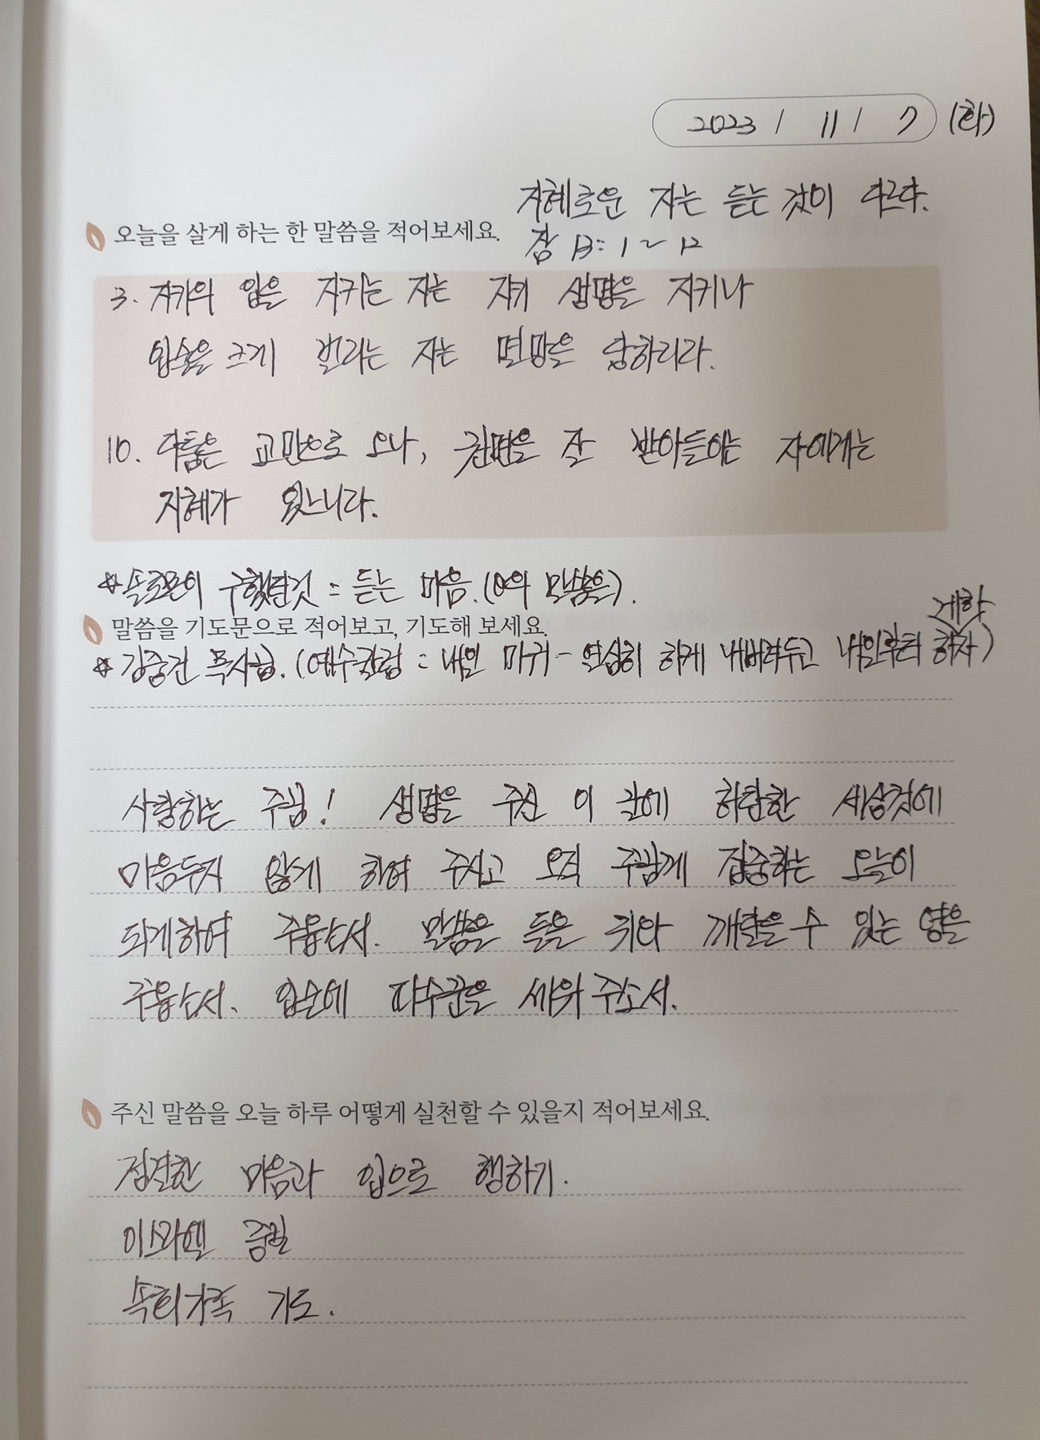 2023 / 11 / 7 (화)
지혜로운 자는 듣는 것이 다르다.
오늘을 살게 하는 한 말씀을 적어보세요.
잠 13: 1 ~ 12
3. 자기의 입을 지키는 자는 자기 생명을 지키나
입술을 크게 벌리는 자는 멸망을 당하리라.
10. 다툼은 교만으로 오나, 권면을 잘 받아들이는 자에게는
지혜가 있느니라.
* 솔로몬이 구했던것 = 듣는 마음. (여와 말씀을).
말씀을 기도문으로 적어보고, 기도해 보세요.
계획
* 김중건 목사님. (예수권럼 = 내인 마귀 - 열심히 하게 내버려두고 내일부터 하자)
사랑하는 주님! 생명을 주신 이 날에 허탄한 세상것에
마음두지 않게 하여 주시고 오직 주님께 집중하는 오늘이
되게하여 주옵소서. 말씀을 들을 귀와 깨달을 수 있는 영을
주옵소서. 입술에 파수꾼을 세워 주소서.
주신 말씀을 오늘 하루 어떻게 실천할 수 있을지 적어보세요.
정결한 마음과 입으로 행하기.
이스라엘 중보
속회가족 기도.